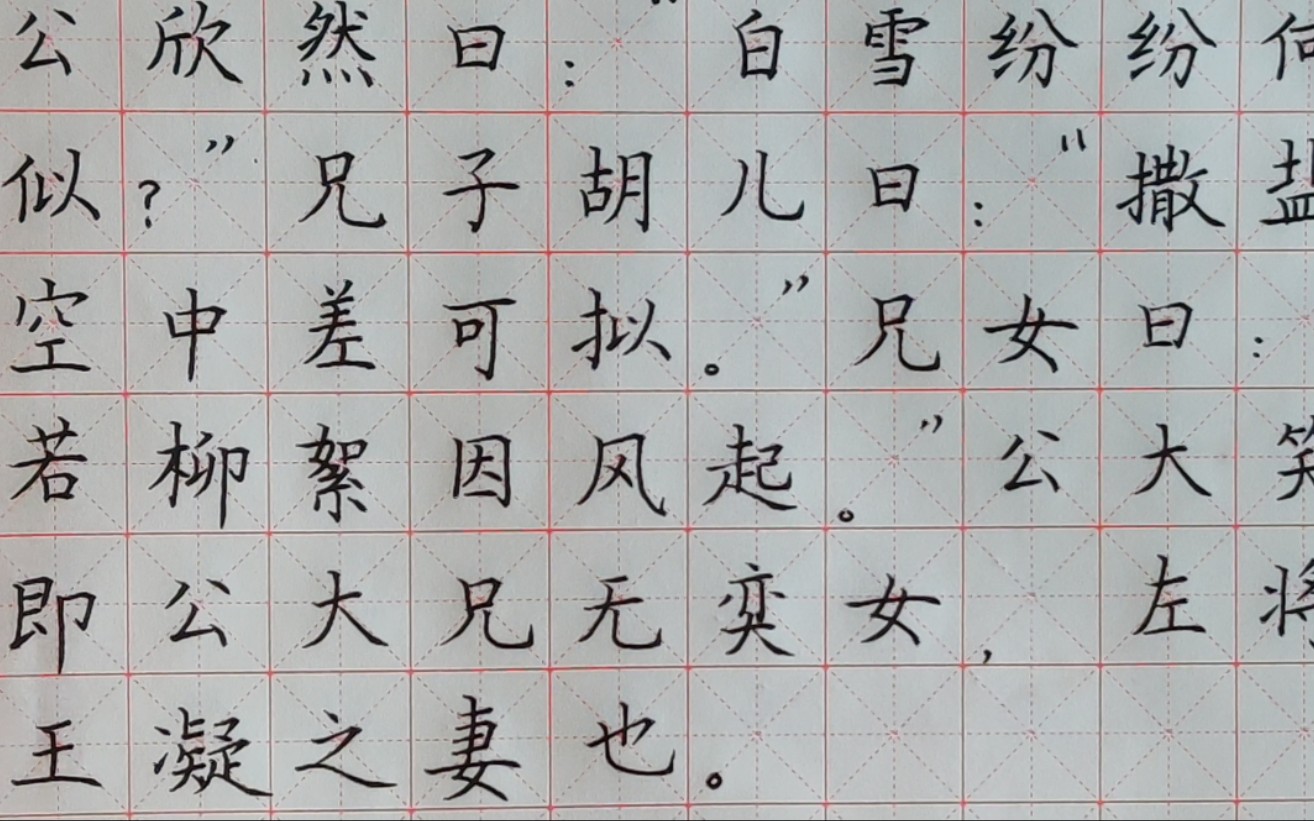 公欣然曰：“白雪纷纷何
似？”兄子胡儿曰：“撒盐
空中差可拟。”兄女曰：
若柳絮因风起。”公大笑
即公大兄无奕女，左将
王凝之妻也。